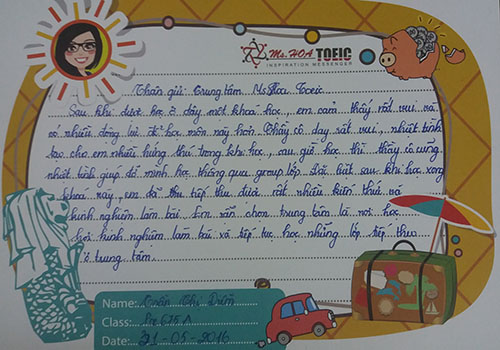 Ms. HOA TOEIC
INSPIRATION MESSENGER
Thân gửi: Trung tâm Ms Hoa Toeic.
Sau khi được học ở đây một khoá học, em cảm thấy rất vui và
có nhiều động lực để học môn này hơn. Thầy cô dạy rất vui, nhiệt tình
tạo cho em nhiều hứng thú trong khi học, sau giờ học thì thầy cô cũng
nhiệt tình giúp đỡ mình học thông qua group lớp. Đặc biệt sau khi học xong
khoá này, em đã thu tiếp thu được rất nhiều kiến thức và
kinh nghiệm làm bài. Em vẫn chọn trung tâm là nơi học
hỏi kinh nghiệm làm bài và tiếp tục học những lớp tiếp theo
ở trung tâm.
Name: Thị
Class: A
Date: 21-05-2016